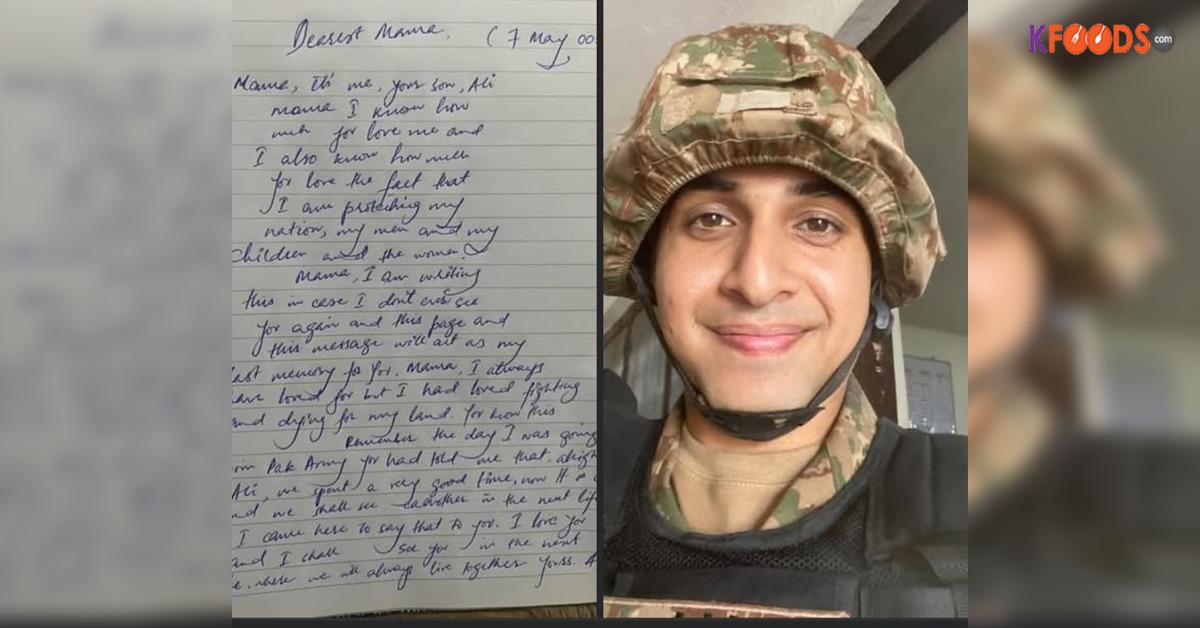 Dearest Mama,
(7 May 00
Mama, It's me, your son, Ali
mama I know how
much you love me and
I also know how much
you love the fact that
I am protecting my
nation, my men and my
children and the women.
Mama, I am writing
this in case I don't ever see
you again and this page and
this message will act as my
last memory for you. Mama, I always
have loved you but I had loved fighting
and dying for my land. You know this
Remember the day I was going
join Pak Army you had told me that, alright
Ali, we spent a very good time, now it is
and we shall see eachother in the next life
I came here to say that to you. I love you
and I shall see you in the next
where we will always live together yours. A
KFOODS.com